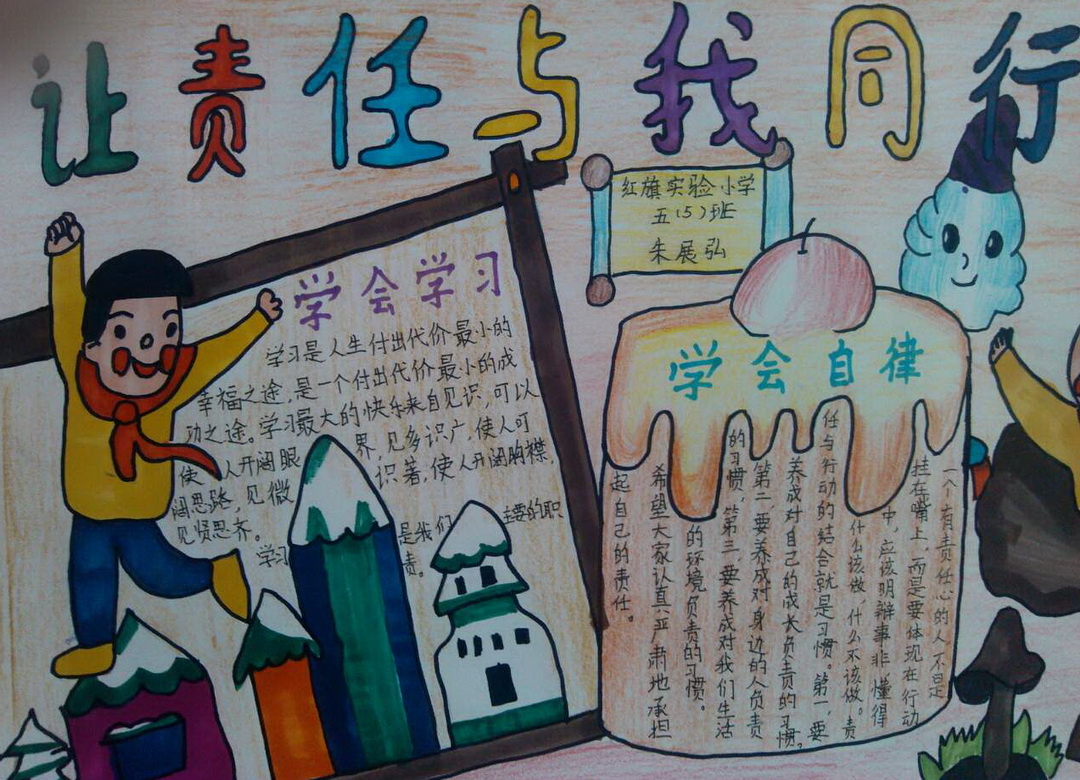 让责任与我同行
红旗实验小学
五(5)班
朱展弘
学会学习
学习是人生付出代价最小的
幸福之途,是一个付出代价最小的成
功之途。学习最大的快乐来自见识,可以
使人开阔眼界,见多识广,使人可
阔思路,见微识著,使人开阔胸襟,
见贤思齐。
学习是我们主要的职
责。
学会自律
一个有责任心的人不是
挂在嘴上,而是要体现在行动
中,应该明辩事非,懂得
什么该做,什么不该做。责
任与行动的结合就是习惯。第一,要
养成对自己的成长负责的习惯,
第二,要养成对身边的人负责
的习惯,第三,要养成对我们生活
的环境负责的习惯。
希望大家认真严肃地承担
起自己的责任。